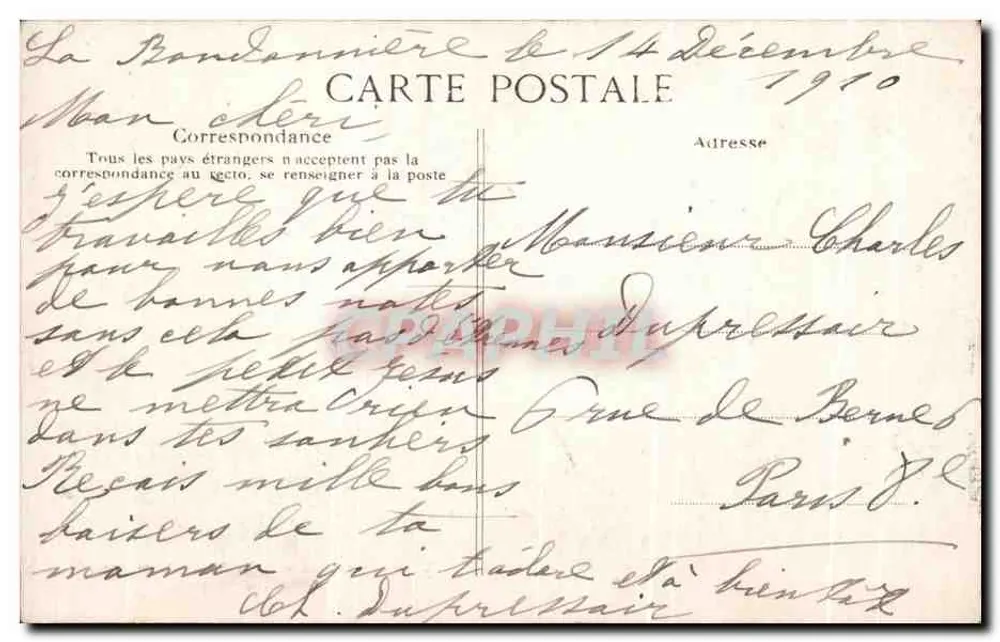 La Bourdonnière le 14 Décembre
1910
CARTE POSTALE
Mon chéri,
Correspondance
Tous les pays étrangers n'acceptent pas la
correspondance au recto, se renseigner à la poste
j'espère que tu
travailles bien
pour nous apporter
de bonnes notes
sans cela pas d'étrennes
et le petit Jesus
ne mettra rien
dans tes souliers
Reçois mille bons
baisers de ta
maman qui t'adore et à bientôt
Ch. Dupressoir
Adresse
Monsieur Charles
Dupressoir
6 rue de Berne 6
Paris 8e
CPAPHIL